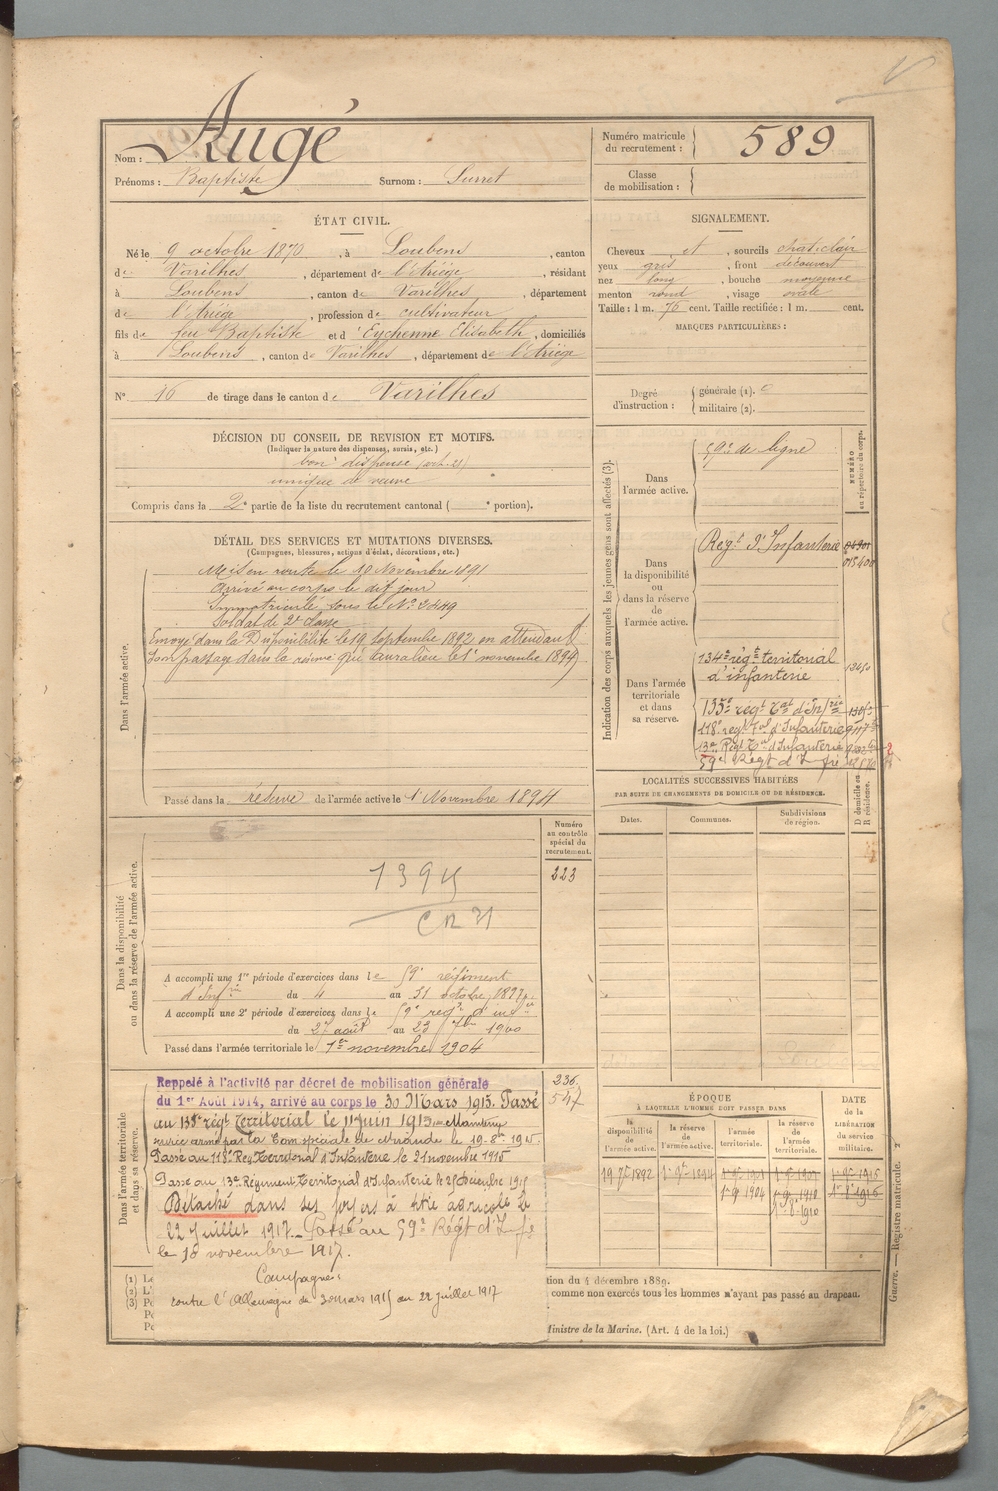 Augé
Nom :
Prénoms : Baptiste Surnom : Surret
Numéro matricule du recrutement : 589
Classe de mobilisation :
ÉTAT CIVIL.
Né le 9 octobre 1870, à Loubens, canton
de Varilhes, département de l'Ariége, résidant
à Loubens, canton de Varilhes, département
de l'Ariége, profession de cultivateur
fils de feu Baptiste et d'Eychenne Elisabeth, domiciliés
à Loubens, canton de Varilhes, département de l'Ariége
N° 16 de tirage dans le canton de Varilhes
SIGNALEMENT.
Cheveux et, sourcils chât. clair
yeux gris, front découvert
nez long, bouche moyenne
menton rond, visage ovale
Taille : 1 m. 76 cent. Taille rectifiée : 1 m. cent.
MARQUES PARTICULIÈRES :
Degré d'instruction : générale (1).
militaire (2).
DÉCISION DU CONSEIL DE REVISION ET MOTIFS.
(Indiquer la nature des dispenses, sursis, etc.)
bon dispensé (art. 21)
unique de veuve
Compris dans la 2e partie de la liste du recrutement cantonal ( e portion).
DÉTAIL DES SERVICES ET MUTATIONS DIVERSES.
(Campagnes, blessures, actions d'éclat, décorations, etc.)
Dans l'armée active.
Mis en route le 10 Novembre 1891
Arrivé au corps le dit jour
Immatriculé sous le N° 3449
Soldat de 2e classe
Envoyé dans la Disponibilité le 19 Septembre 1892 en attendant
son passage dans la réserve qui aura lieu le 1er novembre 1894
Passé dans la réserve de l'armée active le 1er Novembre 1894
Indication des corps auxquels les jeunes gens sont affectés (3).
NUMÉRO au répertoire du corps.
Dans l'armée active.
59e de ligne
Dans la disponibilité ou dans la réserve de l'armée active.
Regt d'Infanterie
Dans l'armée territoriale et dans sa réserve.
134e régt territorial
d'infanterie
135e regt Tal d'Inf rie
118e regt Tal d'Infanterie
13e Régt Tal d'Infanterie
59e Régt d'Ifrie
LOCALITÉS SUCCESSIVES HABITÉES
PAR SUITE DE CHANGEMENTS DE DOMICILE OU DE RÉSIDENCE.
Dates. Communes. Subdivisions de région. D domicile ou R résidence.
Dans la disponibilité ou dans la réserve de l'armée active.
Numéro au contrôle spécial du recrutement.
223
A accompli une 1re période d'exercices dans le 59e régiment
d'Infrie du 4 au 31 octobre 1897
A accompli une 2e période d'exercices dans le 59e regt d'infie
du 27 août au 23 7bre 1900
Passé dans l'armée territoriale le 1er novembre 1904
Dans l'armée territoriale et dans sa réserve.
236.
547
Rappelé à l'activité par décret de mobilisation générale
du 1er Août 1914, arrivé au corps le 30 Mars 1915. Passé
au 135e régt Territorial le 11 Juin 1915 = Maintenu
service armé par la Com spéciale de Mirande le 19.8bre 1915.
Passé au 118e Reg Territorial d'Infanterie le 21 novembre 1915
Passé au 13e Régiment Territorial d'Infanterie le 25 Décembre 1915
Détaché dans ses foyers à titre agricole le
22 Juillet 1917. Passé au 59e Régt d'Ifie
le 18 novembre 1917.
Campagnes
contre l'Allemagne du 30 mars 1915 au 22 Juillet 1917
ÉPOQUE
À LAQUELLE L'HOMME DOIT PASSER DANS
la disponibilité de l'armée active. la réserve de l'armée active. l'armée territoriale. la réserve de l'armée territoriale.
DATE de la LIBÉRATION du service militaire.
1er 9bre 1904
(1)
(2)
(3)
tion du 4 décembre 1889.
comme non exercés tous les hommes n'ayant pas passé au drapeau.
Ministre de la Marine. (Art. 4 de la loi.)
Guerre. — Registre matricule.